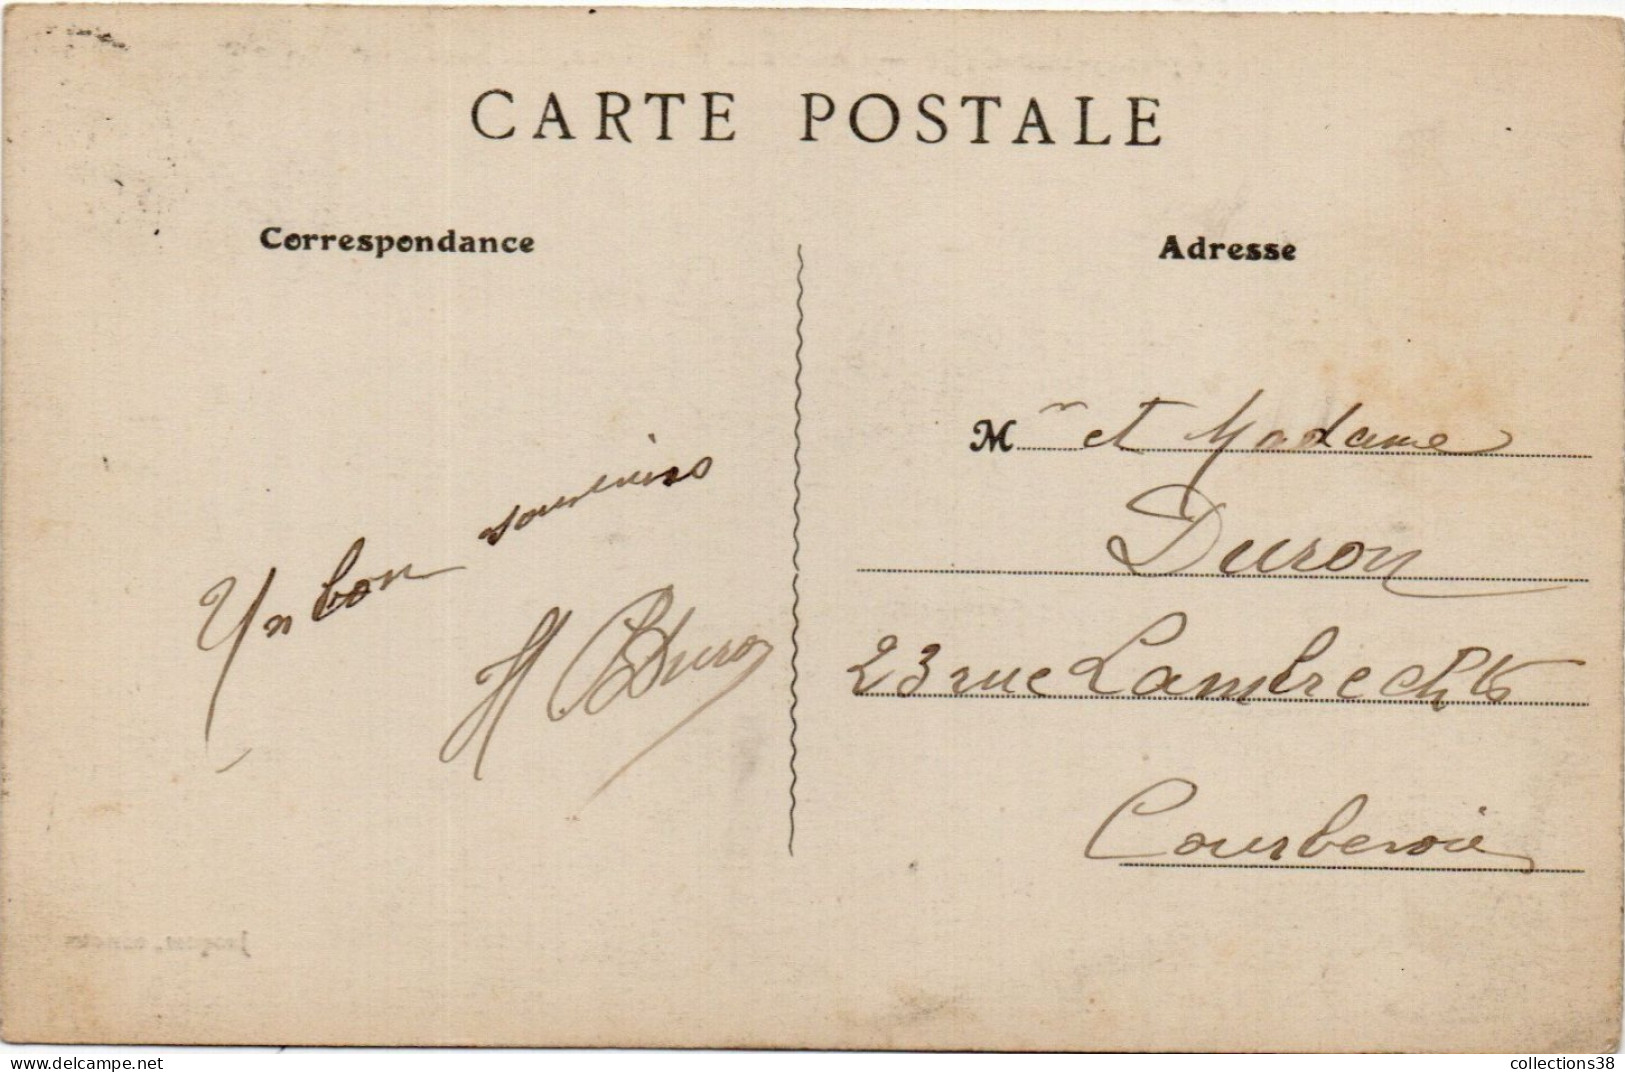 CARTE POSTALE
Correspondance
Un bon souvenirs
H Duron
Adresse
Mr et Madame
Duron
23 rue Lambrechts
Courbevoie
www.delcampe.net
collections38